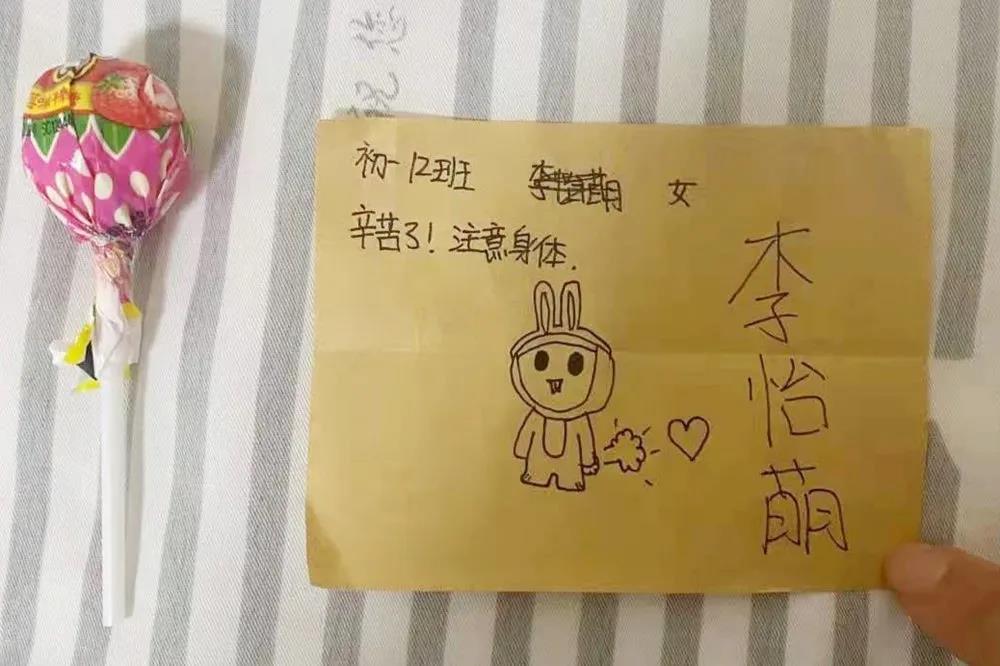 祝您
初一12班 李怡萌 女
辛苦了！注意身体.
李怡萌